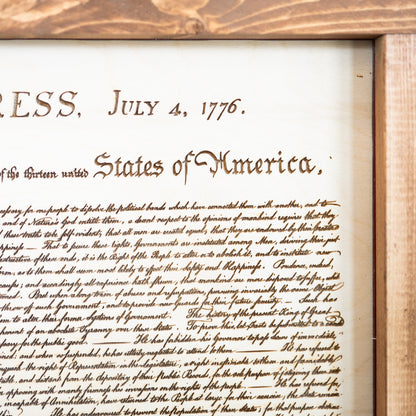 RESS, July 4, 1776.
of the thirteen united States of America,
for one people to dissolve the political bands which have connected them with another, and to
and of Nature's God entitle them, a decent respect to the opinions of mankind requires that they
these truths to be self evident, that all men are created equal, that they are endowed by their Creator
— That to secure these rights, Governments are instituted among Men, deriving their just
of these ends, it is the Right of the People to alter or to abolish it, and to institute new
as to them shall seem most likely to effect their Safety and Happiness. Prudence, indeed,
and accordingly all experience hath shewn, that mankind are more disposed to suffer, while
But when a long train of abuses and usurpations, pursuing invariably the same Object
off such Government, and to provide new Guards for their future security. — Such has
to alter their former Systems of Government. The history of the present King of Great
of an absolute Tyranny over these States. To prove this, let Facts be submitted to a candid
for the public good. — He has forbidden his Governors to pass Laws of immediate
and when so suspended, he has utterly neglected to attend to them. — He has refused to
the right of Representation in the Legislature, a right inestimable to them and formidable
and distant from the depository of their Public Records, for the sole purpose of fatiguing them into
opposing with manly firmness his invasions on the rights of the people. — He has refused for
of Annihilation, have returned to the People at large for their exercise; the State remaining
He has endeavoured to prevent the population of these States; for that purpose